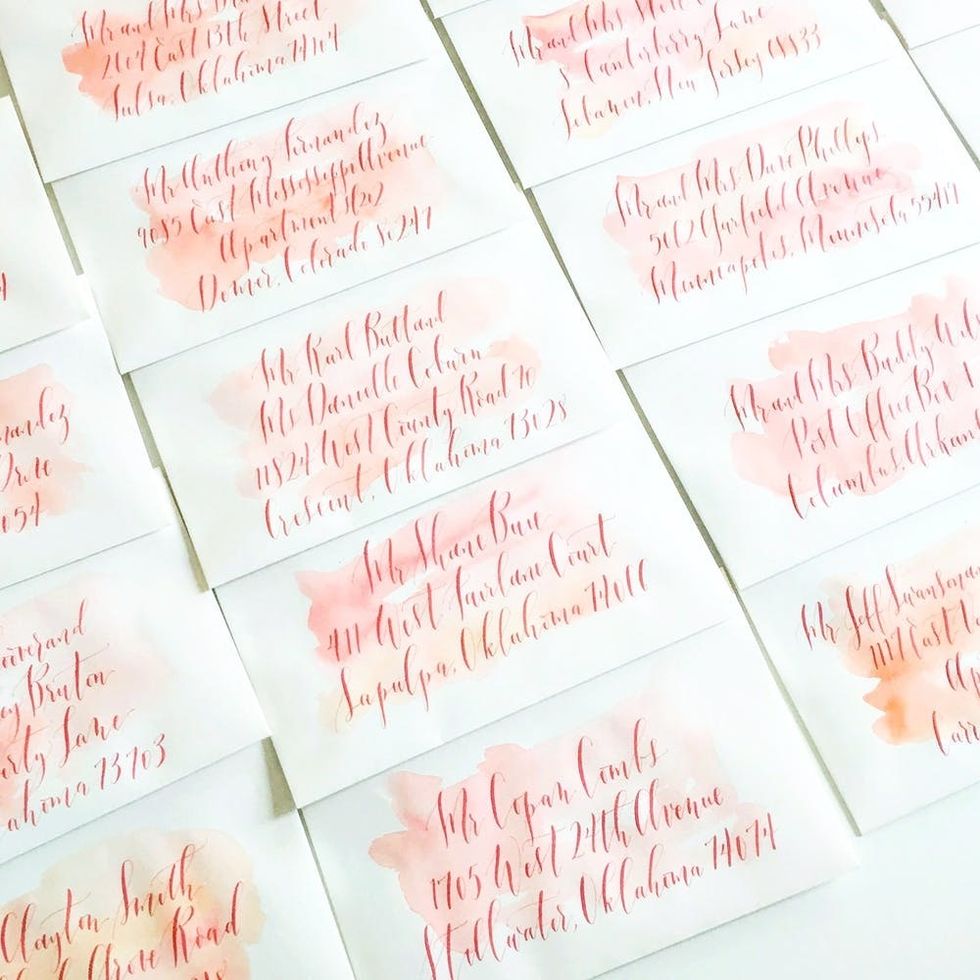 Mr and Mrs
2104 East 13th Street
Tulsa, Oklahoma 74104
Mr Anthony Fernandez
9085 East Mississippi Avenue
Apartment
Denver, Colorado 80247
Mr Karl Rutland
Ms Danielle Coburn
11824 West County Road 70
Crescent, Oklahoma 73028
Mr Shane Buie
411 West Fairlane Court
Sapulpa, Oklahoma 74066
Mr Copan Combs
1705 West 24th Avenue
Stillwater, Oklahoma 74074
Mr and Mrs
5 Canterberry Lane
Lebanon, New Jersey 08833
Mr and Mrs Dave Phillips
5012 Garfield Avenue
Minneapolis, Minnesota 55419
Mr and Mrs Buddy
Post Office Box
Columbus, Arkan
Mr Jeff Swansman
1117 East
Ap
Carr
4
nandez
Drive
054
everend
Bruton
erty Lane
ahoma 73703
Clayton Smith
Grove Road